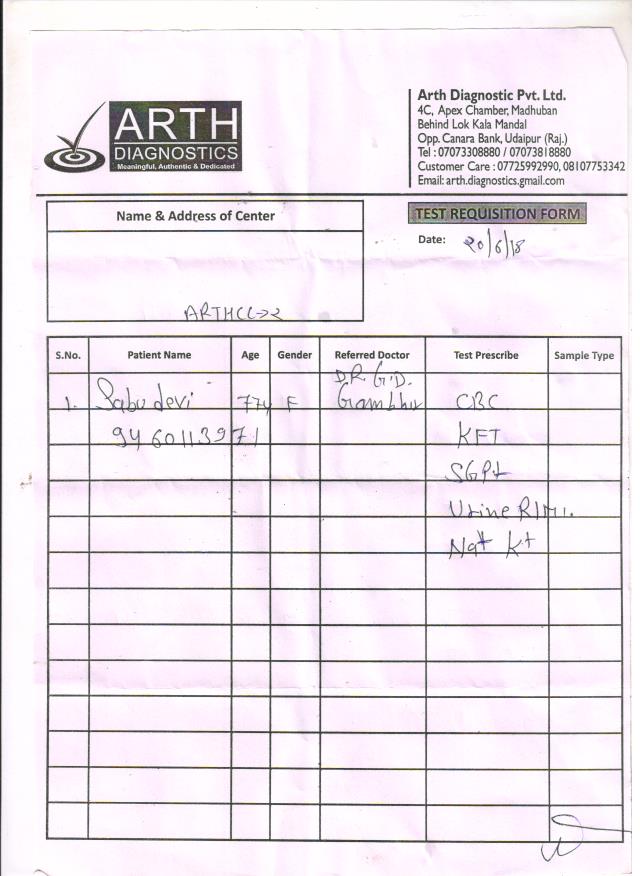 ARTH
DIAGNOSTICS
Meaningful, Authentic & Dedicated
Arth Diagnostic Pvt. Ltd.
4C, Apex Chamber, Madhuban
Behind Lok Kala Mandal
Opp. Canara Bank, Udaipur (Raj.)
Tel : 07073308880 / 07073818880
Customer Care : 07725992990, 08107753342
Email: arth.diagnostics.gmail.com
Name & Address of Center
TEST REQUISITION FORM
Date: 20/6/18
S.No. Patient Name Age Gender Referred Doctor Test Prescribe Sample Type
DR. G.D.
1. Babu devi 77y F CBC
9460113971 KFT
SGPt
Urine R/M.
Na+ K+